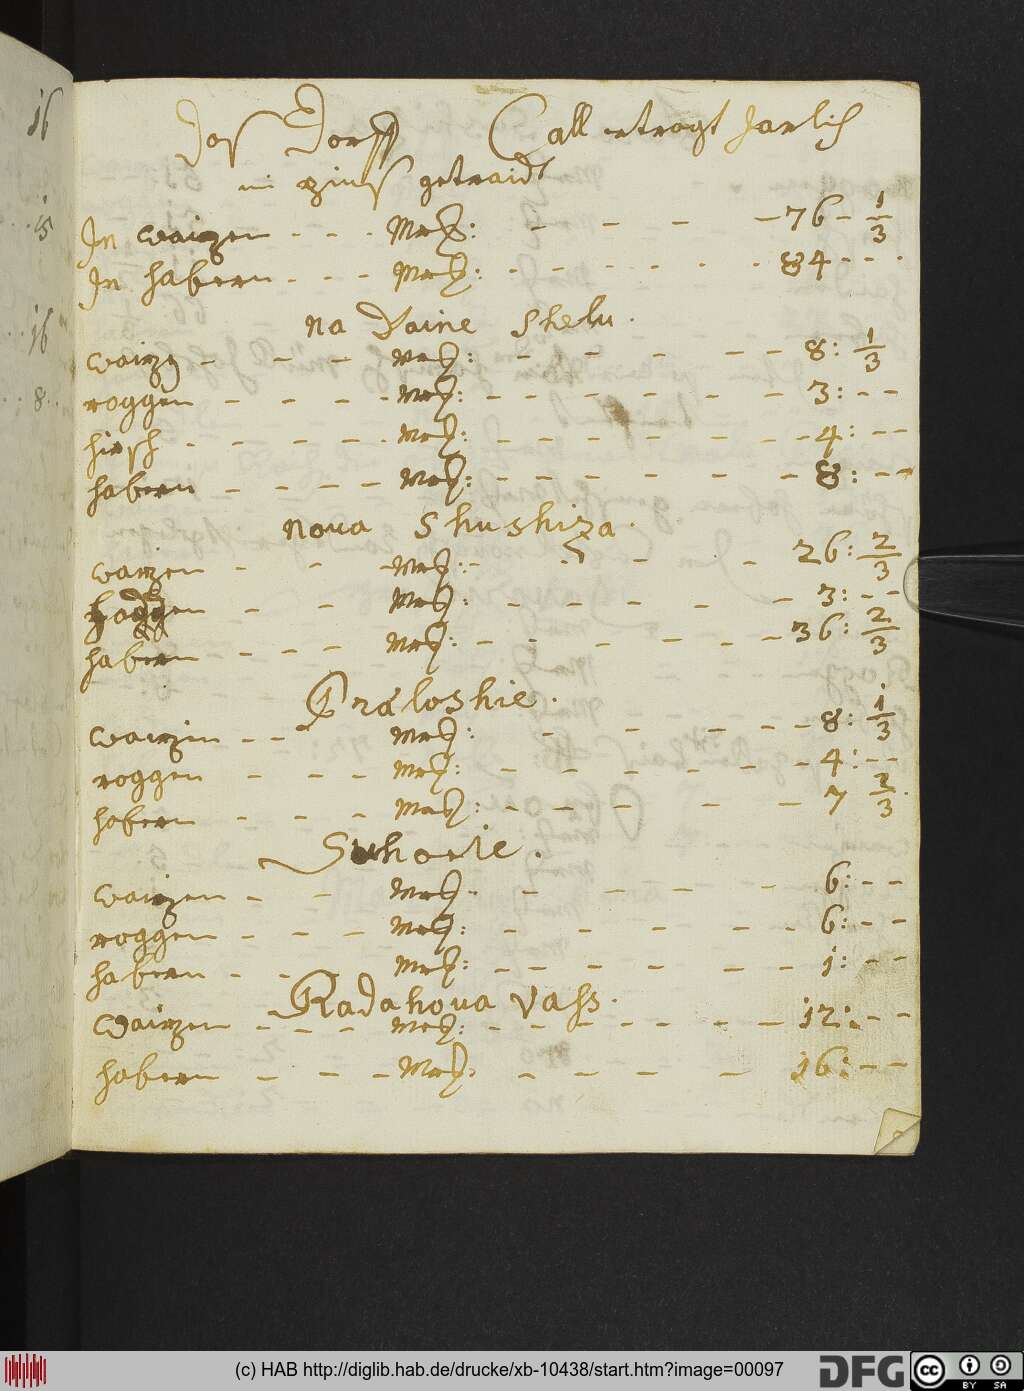 16
5
16
8
Das Dorff Call ertragt Jarlich
im zins getraidt
In waizen - - - Mezt: - - - - 76 - 1/3
In habern - - - Mezt: - - - - - 84 - - -
na Daine Shelu.
waizen - - - Mezt: - - - - - 8: 1/3
roggen - - - - Mezt: - - - - - - - 3: - -
hirsch - - - - - Mezt: - - - - - - - 4: - -
habern - - - - Mezt: - - - - - - - 8: - -
nova Shushiza.
waizen - - - Mezt: - - - - 26: 2/3
roggen - - - Mezt: - - - - - 3: - -
habern - - - Mezt: - - - - - 36: 2/3
Praloshie.
waizen - - - Mezt: - - - - 8: 1/3
roggen - - - Mezt: - - - - - 4: - -
habern - - - Mezt: - - - - - 7 2/3
Suhorie.
waizen - - Mezt: - - - - 6: - -
roggen - - - Mezt: - - - - - 6: - -
habern - - - Mezt: - - - - - - 1: - -
Radahova Vass.
Waizen - - - - Mezt: - - - - - - 12: - -
habern - - - Mezt: - - - - 16: - -
(c) HAB http://diglib.hab.de/drucke/xb-10438/start.htm?image=00097
DFG
cc BY SA